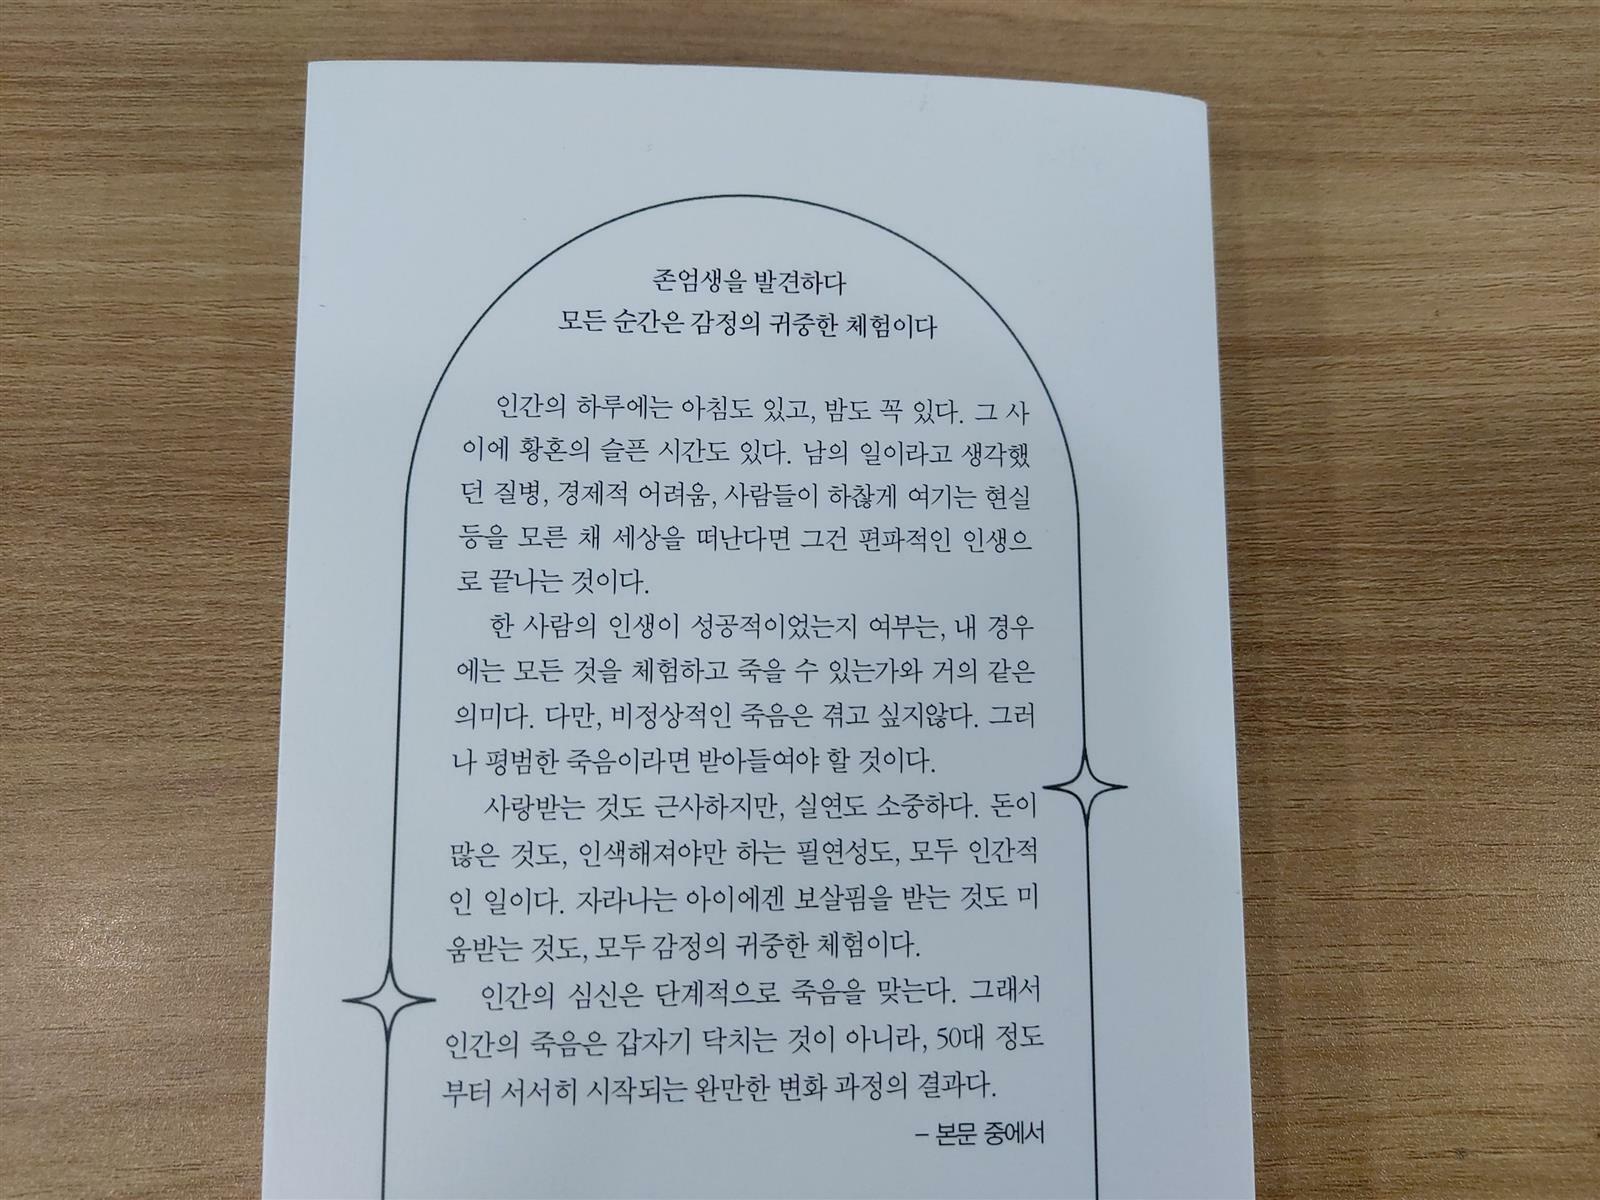 존엄생을 발견하다
모든 순간은 감정의 귀중한 체험이다
인간의 하루에는 아침도 있고, 밤도 꼭 있다. 그 사
이에 황혼의 슬픈 시간도 있다. 남의 일이라고 생각했
던 질병, 경제적 어려움, 사람들이 하찮게 여기는 현실
등을 모른 채 세상을 떠난다면 그건 편파적인 인생으
로 끝나는 것이다.
한 사람의 인생이 성공적이었는지 여부는, 내 경우
에는 모든 것을 체험하고 죽을 수 있는가와 거의 같은
의미다. 다만, 비정상적인 죽음은 겪고 싶지않다. 그러
나 평범한 죽음이라면 받아들여야 할 것이다.
사랑받는 것도 근사하지만, 실연도 소중하다. 돈이
많은 것도, 인색해져야만 하는 필연성도, 모두 인간적
인 일이다. 자라나는 아이에겐 보살핌을 받는 것도 미
움받는 것도, 모두 감정의 귀중한 체험이다.
인간의 심신은 단계적으로 죽음을 맞는다. 그래서
인간의 죽음은 갑자기 닥치는 것이 아니라, 50대 정도
부터 서서히 시작되는 완만한 변화 과정의 결과다.
– 본문 중에서